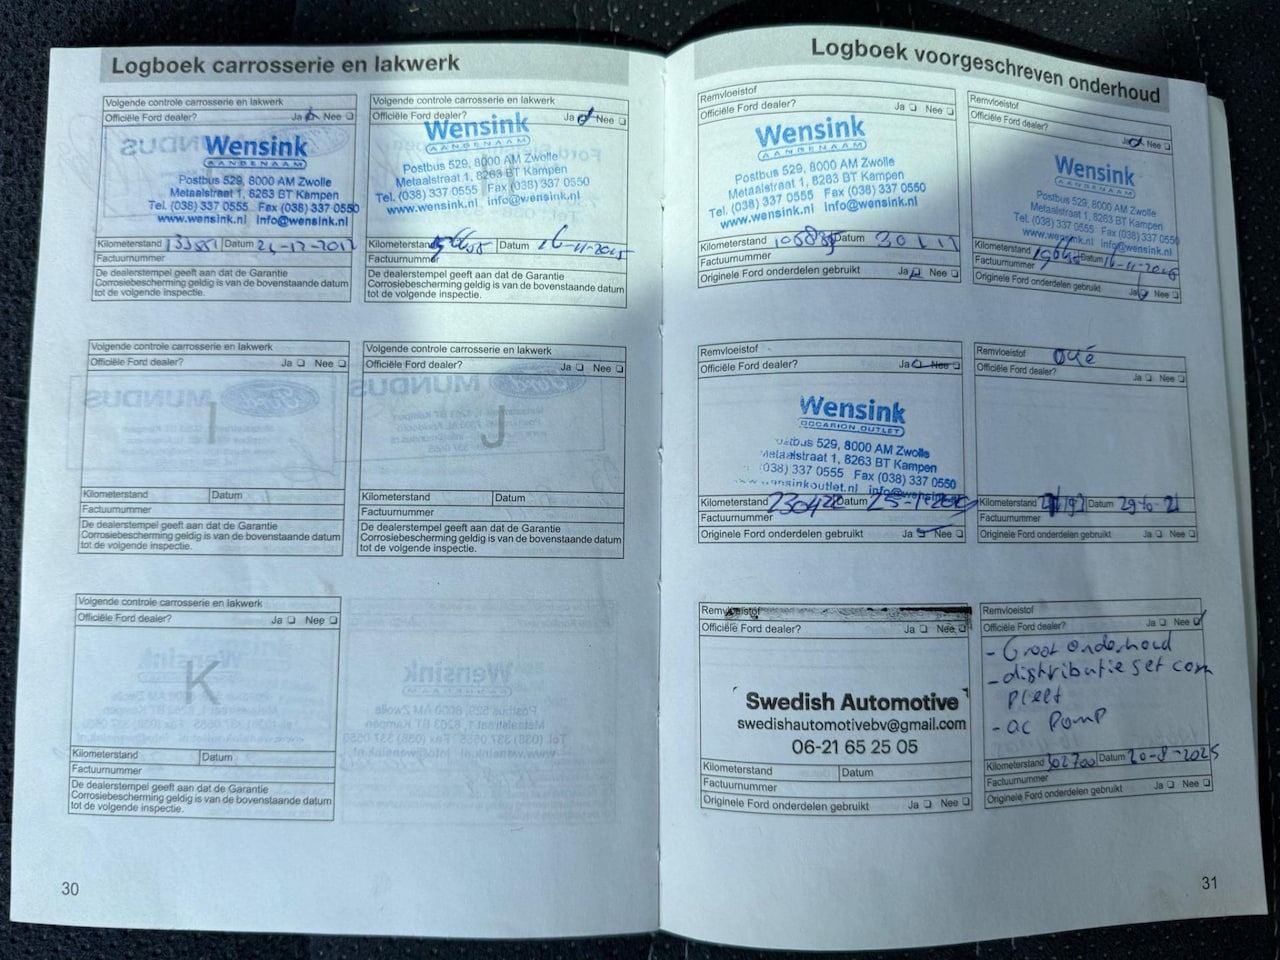 Logboek carrosserie en lakwerk
Volgende controle carrosserie en lakwerk
Officiële Ford dealer? Ja Nee
Wensink
AANGENAAM
Postbus 529, 8000 AM Zwolle
Metaalstraat 1, 8263 BT Kampen
Tel. (038) 337 0555 Fax (038) 337 0550
www.wensink.nl info@wensink.nl
Kilometerstand Datum
Factuurnummer
De dealerstempel geeft aan dat de Garantie
Corrosiebescherming geldig is van de bovenstaande datum
tot de volgende inspectie.
Volgende controle carrosserie en lakwerk
Officiële Ford dealer? Ja Nee
Wensink
AANGENAAM
Postbus 529, 8000 AM Zwolle
Metaalstraat 1, 8263 BT Kampen
Tel. (038) 337 0555 Fax (038) 337 0550
www.wensink.nl info@wensink.nl
Kilometerstand Datum 16-11-2015
Factuurnummer
De dealerstempel geeft aan dat de Garantie
Corrosiebescherming geldig is van de bovenstaande datum
tot de volgende inspectie.
Volgende controle carrosserie en lakwerk
Officiële Ford dealer? Ja Nee
I
Kilometerstand Datum
Factuurnummer
De dealerstempel geeft aan dat de Garantie
Corrosiebescherming geldig is van de bovenstaande datum
tot de volgende inspectie.
Volgende controle carrosserie en lakwerk
Officiële Ford dealer? Ja Nee
J
Kilometerstand Datum
Factuurnummer
De dealerstempel geeft aan dat de Garantie
Corrosiebescherming geldig is van de bovenstaande datum
tot de volgende inspectie.
Volgende controle carrosserie en lakwerk
Officiële Ford dealer? Ja Nee
K
Kilometerstand Datum
Factuurnummer
De dealerstempel geeft aan dat de Garantie
Corrosiebescherming geldig is van de bovenstaande datum
tot de volgende inspectie.
30
Logboek voorgeschreven onderhoud
Remvloeistof
Officiële Ford dealer? Ja Nee
Wensink
AANGENAAM
Postbus 529, 8000 AM Zwolle
Metaalstraat 1, 8263 BT Kampen
Tel. (038) 337 0555 Fax (038) 337 0550
www.wensink.nl info@wensink.nl
Kilometerstand Datum
Factuurnummer
Originele Ford onderdelen gebruikt Ja Nee
Remvloeistof
Officiële Ford dealer? Ja Nee
Wensink
AANGENAAM
Postbus 529, 8000 AM Zwolle
Metaalstraat 1, 8263 BT Kampen
Tel. (038) 337 0555 Fax (038) 337 0550
www.wensink.nl info@wensink.nl
Kilometerstand Datum 16-11-2015
Factuurnummer
Originele Ford onderdelen gebruikt Ja Nee
Remvloeistof
Officiële Ford dealer? Ja Nee
Wensink
OCCASION OUTLET
Postbus 529, 8000 AM Zwolle
Metaalstraat 1, 8263 BT Kampen
(038) 337 0555 Fax (038) 337 0550
Kilometerstand 230422 Datum
Factuurnummer
Originele Ford onderdelen gebruikt Ja Nee
Remvloeistof
Officiële Ford dealer? Ja Nee
Kilometerstand Datum
Factuurnummer
Originele Ford onderdelen gebruikt Ja Nee
Remvloeistof
Officiële Ford dealer? Ja Nee
Swedish Automotive
swedishautomotivebv@gmail.com
06-21 65 25 05
Kilometerstand Datum
Factuurnummer
Originele Ford onderdelen gebruikt Ja Nee
Remvloeistof
Officiële Ford dealer? Ja Nee
- Groot onderhoud
- distributie set com
pleet
- ac pomp
Kilometerstand 302700 Datum 20-8-2025
Factuurnummer
Originele Ford onderdelen gebruikt Ja Nee
31